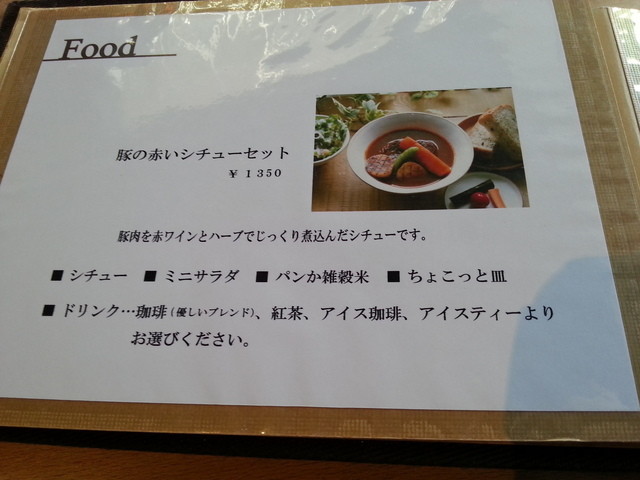 Food
豚の赤いシチューセット
￥１３５０
豚肉を赤ワインとハーブでじっくり煮込んだシチューです。
■ シチュー ■ ミニサラダ ■ パンか雑穀米 ■ ちょこっと皿
■ ドリンク…珈琲（優しいブレンド）、紅茶、アイス珈琲、アイスティーより
お選びください。